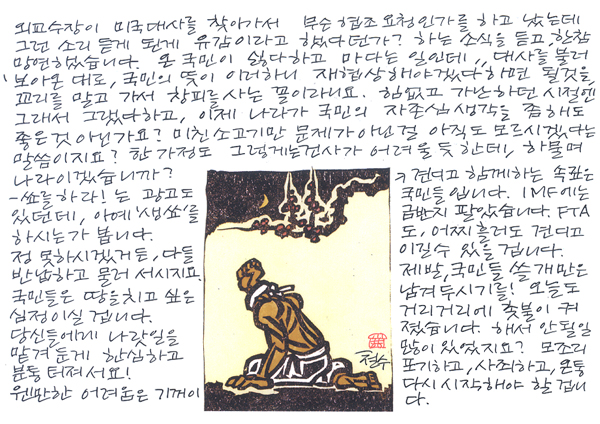 외교수장이 미국대사를 찾아가서 무슨 협조 요청인가를 하고 났는데
그런 소리 듣게 된게 유감이라고 했다던가? 하는 소식을 듣고, 한참
망연했었습니다. 온 국민이 싫다하고 마다는 일인데,, 대사를 불러
'보아온 대로, 국민의 뜻이 이러하니 재협상해야겠다하면 될것을
꼬리를 말고 가서 창피를 사는 꼴이라니요. 힘없고 가난하던 시절엔
그래서 그랬다하고, 이제 나라가 국민의 자존심 생각을 좀해도
좋은것 아닌가요? 미친소고기만 문제가 아닌걸 아직도 모르시겠다는
말씀이지요? 한 가정도 그렇게는 건사가 어려울 듯 한데, 하물며
나라이겠습니까?
-쑈를하라! 는 광고도
있던데, 아예 '생쑈'를
하시는가 봅니다.
정 못하시겠거든, 다들
반납하고 물러 서시지요.
국민들은 땅을치고 싶은
심정이실 겁니다.
당신들에게 나랏일을
맡겨 둔게 한심하고
분통 터져서요!
웬만한 어려움은 기꺼이
견디고 함께하는 속 좋은
국민들 입니다. IMF에는
금반지 팔았습니다. FTA
도, 어찌 흘러도 견디고
이길수 있을 겁니다.
제발, 국민들 쓸개만은
남겨 두시기를! 오늘도
거리거리에 촛불이 켜
졌습니다. 해서 안될일
많이 있었지요? 모조리
포기하고, 사죄하고, 온통
다시 시작해야 할 겁니
다.
철수